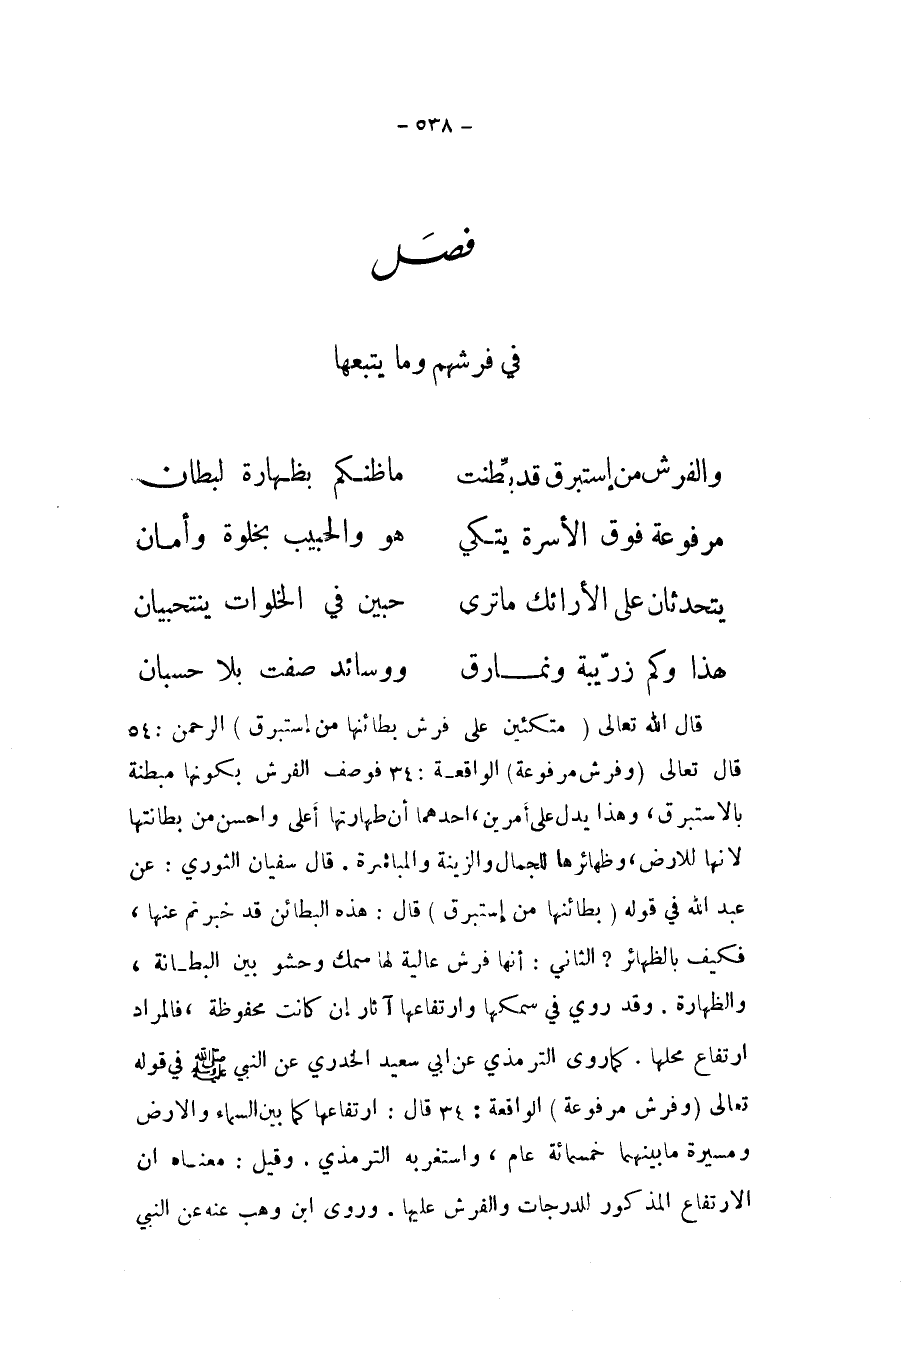 - ٥٣٨ -
فصَل
في فرشهم وما يتبعها
والفرش من إستبرق قد بطّنت ماظنكم بظهارة لبطان
مرفوعة فوق الأسرة يتكي هو والحبيب بخلوة وأمان
يتحدثان على الأرائك ماترى حبين في الخلوات ينتحبيان
هذا وكم زربّية ونمارق ووسائد صفت بلا حسبان
قال الله تعالى ( متكئين على فرش بطائنها من إستبرق ) الرحمن : ٥٤
قال تعالى (وفرش مرفوعة) الواقعة : ٣٤ فوصف الفرش بكونها مبطنة
بالاستبرق، وهذا يدل على أمرين، احدهما أن ظهارتها أعلى واحسن من بطانتها
لانها للارض، وظهائرها للجمال والزينة والمباشرة . قال سفيان الثوري : عن
عبد الله في قوله ( بطائنها من إستبرق ) قال : هذه البطائن قد خبرتم عنها ،
فكيف بالظهائر ? الثاني : أنها فرش عالية لها سمك وحشو بين البطانة ،
والظهارة . وقد روي في سمكها وارتفاعها آثار إن كانت محفوظة ، فالمراد
ارتفاع محلها . كما روى الترمذي عن ابي سعيد الخدري عن النبي ﷺ في قوله
تعالى (وفرش مرفوعة ) الواقعة : ٣٤ قال : ارتفاعها كما بين السماء والارض
ومسيرة مابينهما خمسمائة عام ، واستغربه الترمذي . وقيل : معناه ان
الارتفاع المذكور للدرجات والفرش عليها . وروى ابن وهب عنه عن النبي